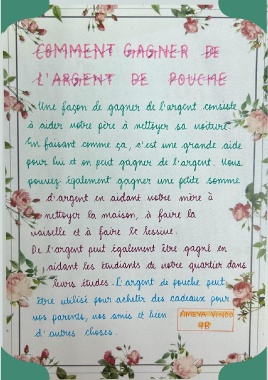 COMMENT GAGNER DE
L'ARGENT DE POUCHE
Une façon de gagner de l'argent consiste
à aider votre père à nettoyer sa voiture.
En faisant comme ça, c'est une grande aide
pour lui et on peut gagner de l'argent. Vous
pouvez également gagner une petite somme
d'argent en aidant votre mère à
nettoyer la maison, à faire la
vaiselle et à faire le lessive.
De l'argent peut également être gagné en
aidant les étudiants de notre quartier dans
leurs études. L'argent de pouche peut
être utilisé pour acheter des cadeaux pour
vos parents, vos amis et bien
d'autres choses.
AMEYA VINOD
9B